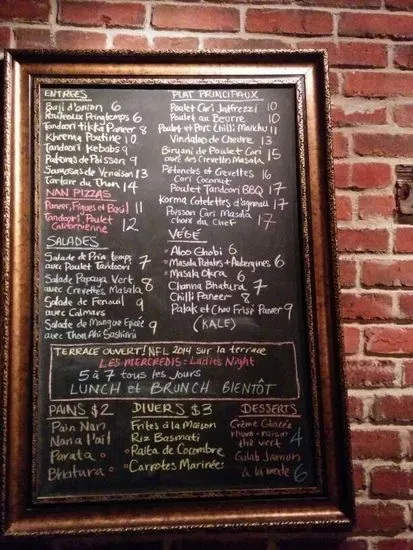 ENTRÉES
Baji d'onion 6
Rouleaux Printemps 6
Tandoori tikka Paneer 8
Kheema Poutine 10
Tandoori Kebabs 9
Pakoras de Poisson 9
Samosas de Venaison 13
Tartare du Thon 14
NAN PIZZAS
Paneer, Figues et Basil 11
Tandoori Poulet
Californienne 12
SALADES
Salade de Prin temps
avec Poulet Tandoori 7
Salade Papaya Vert
avec Crevettes Masala 8
Salade de Fenouil
avec Calmars 9
Salade de Mangue Épicé
avec Thon Ahi Sashimi 9
PLAT PRINCIPAUX
Poulet Cari Jalfrezzi 10
Poulet au Beurre 10
Poulet et Porc Chilli Manchu 11
Vindaloo de Chevre 13
Biryani de Poulet Cari
avec des Crevettes Masala 15
Pétoncles et Crevettes
Cari Coconut 16
Poulet Tandoori BBQ 17
Korma Cotelettes d'agneau 17
Poisson Cari Masala
chons du Chef 17
VÉGÉ
• Aloo Ghobi 6
• Masala Patates + Aubergines 6
• Masala Okra 6
• Channa Bhatura 7
• Chilli Paneer 8
• Palak et Chou Frisé Paneer 9
(KALE)
TERRACE OUVERT! NFL 2014 sur la terrace
LES MERCREDIS: Ladies Night
5 à 7 tous les Jours
LUNCH et BRUNCH BIENTÔT
PAINS $2
Pain Nan
Nan a l'ail
Parata
Bhatura
DIVERS $3
Frites à la Maison
Riz Basmati
Raita de Cocombre
Carrottes Marinées
DESSERTS
Crème Glacée
rhum-raisin
thé vert 4
Gulab Jamon
à la mode 6